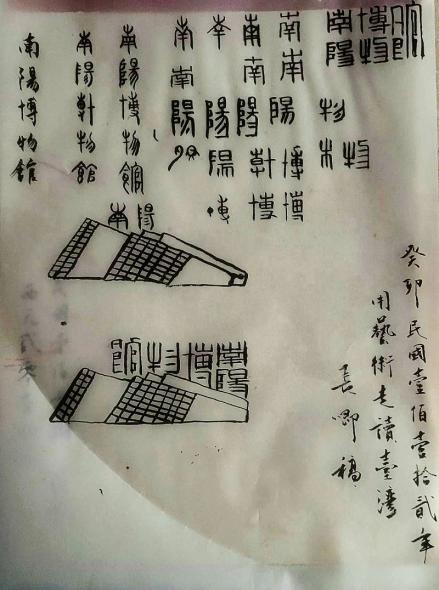 南陽博物館
物
物
南南陽博博
南南陽博博
南陽陽博
南南陽陽
南陽博物館
南陽博物館
南陽博物館
南陽
南陽博物館
癸卯民國壹佰壹拾貳年
用藝術走讀臺灣
長卿稿